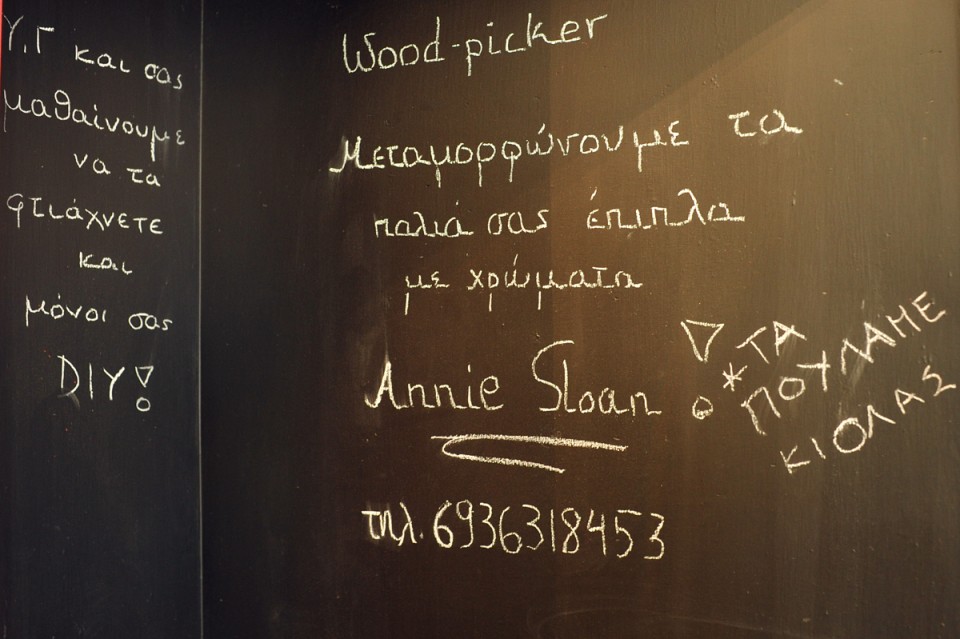 Υ.Γ και σας
μαθαίνουμε
να τα
φτιάχνετε
και
μόνοι σας
DIY!
Wood-picker
Μεταμορφώνουμε τα
παλιά σας έπιπλα
με χρώματα
Annie Sloan !
* ΤΑ
ΠΟΥΛΑΜΕ
ΚΙΟΛΑΣ
τηλ. 6936318453